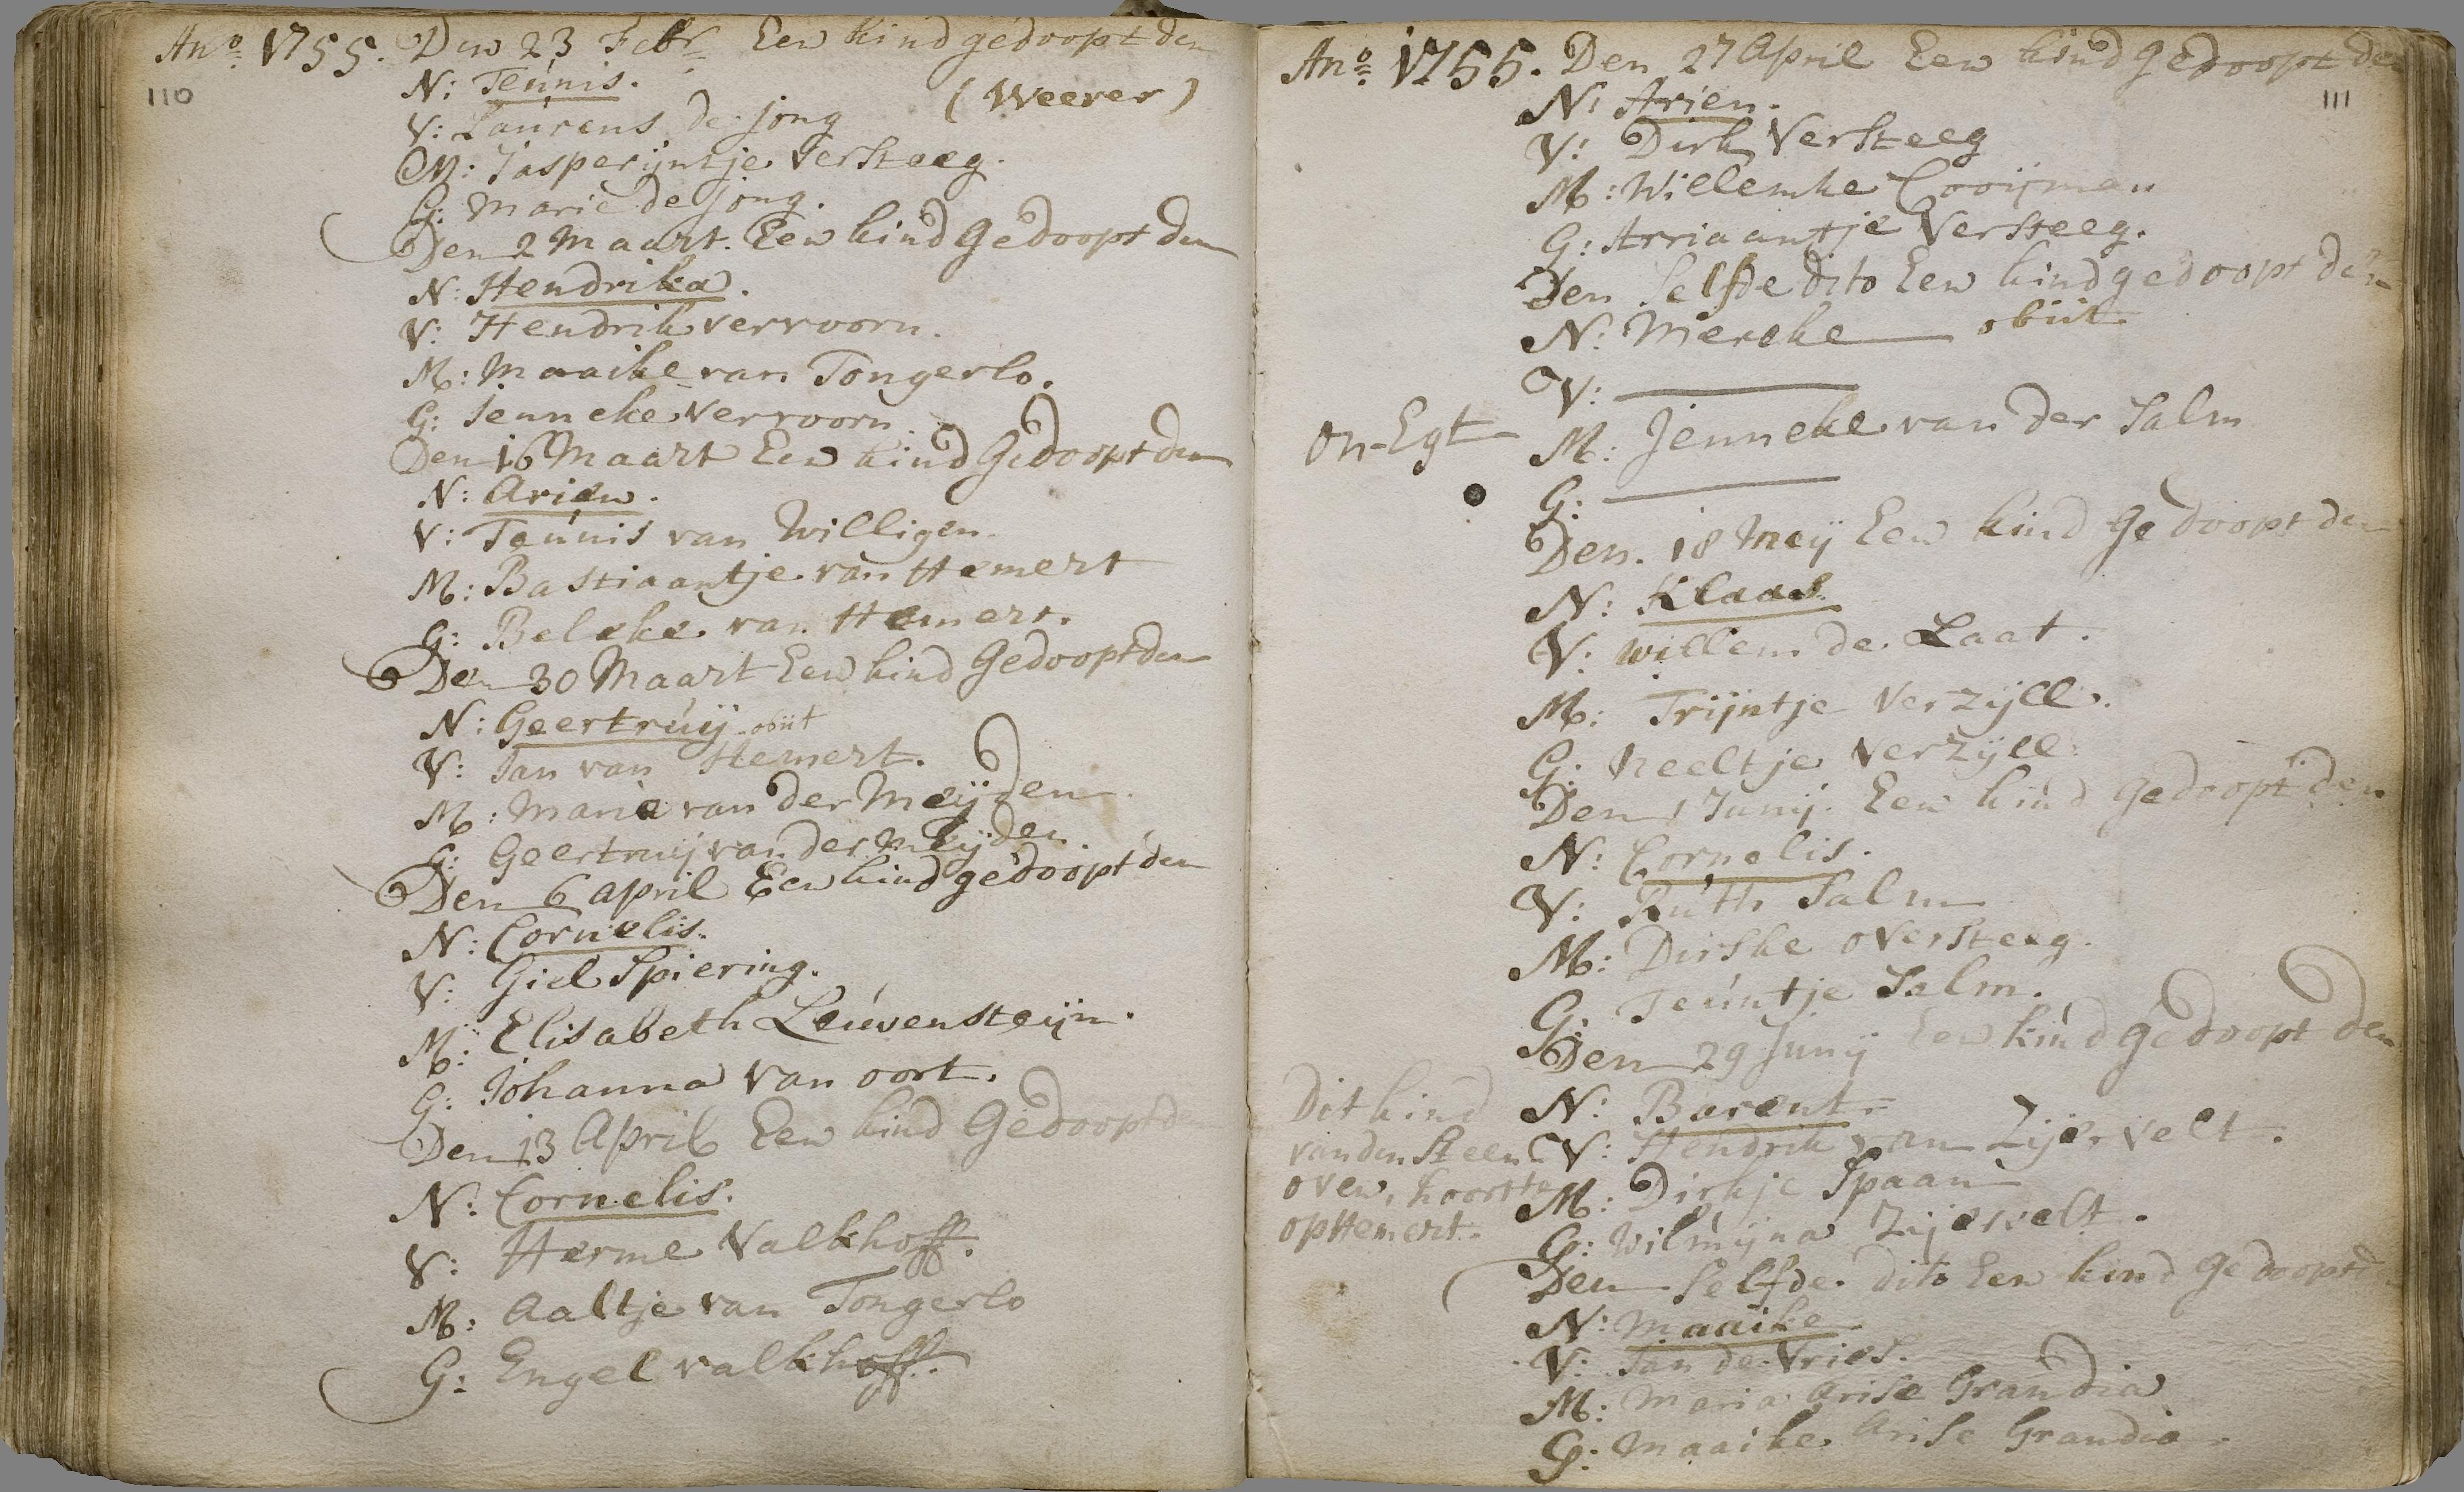 Ano. 1755. Den 23 Febr. Een kind gedoopt den
110
N: Teúnis.
(Weever)
V: Laúrens de jong
M: Jasperijntje Versteeg.
G: Marie de Jong.
Den 2 Maart. Een kind Gedoopt den
N: Hendrika.
V: Hendrik vervoorn.
M: Maaike van Tongerlo.
G: Jenneke Vervoorn.
Den 16 Maart Een kind Gedoopt den
N: Arien.
V: Teúnis van Willigen.
M: Bastiaantje van Hemert
G: Beleke van Hemert.
Den 30 Maart Een kind Gedoopt den
N: Geertrúij obiit
V: Jan van Hemert.
M: Maria van der Meijden.
G: Geertruij van der Meijden.
Den 6 April Een kind gedoopt den
N: Cornelis.
V: Giel Spiering.
M: Elisabeth Leúvensteijn.
G: Johanna van oort.
Den 13 April Een kind Gedoopt den
N: Cornelis.
V: Herme Valkhoff.
M: Aaltje van Tongerlo
G: Engel valkhoff.
Ano. 1755. Den 27 April Een kind gedoopt den
111
N: Arien.
V: Dirk Versteeg
M: Willemke Cooijman
G: Arriaantje Versteeg.
Den Selfde dito Een kind gedoopt den
N: Mereke obiit
V:
On-Egt M: Jenneke van der Salm
G:
Den. 18 Meij Een kind Gedoopt den
N: Klaas.
V: Willem de Laat.
M: Trijntje Verzijll.
G: Neeltje Verzijll.
Den 1 Junij. Een kind Gedoopt den
N: Cornelis.
V: Rúth Salm
M: Dirske oversteeg.
G: Teúntje Salm.
Den 29 Junij Een kind Gedoopt den
Dit kind
van den Steen
oven, hoort te
op Hemert.
N: Barent.
V: Hendrik van Zijervelt.
M: Dirkje Spaan
G: Wilmijna Zijervelt.
Den Selfde dito Een kind Gedoopt den
N: Maaike
V: Jan de Vries.
M: Maria Arise Grandia
G: Maaike Arise Grandia